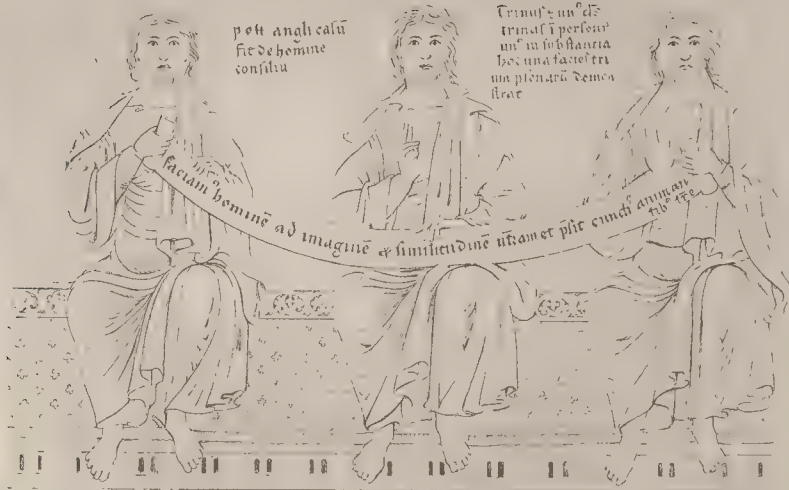 post angli casū
fit de homine
consiliū
Trinus & unꝰ ds̄
trinus ī personis
unꝰ in substantia
hoc una facies tri
um plenariū demon
strat
faciamꝰ hominē ad imaginē & similitudinē nr̄am et p̄sit cunctꝭ animan
tibꝰ tr̄e